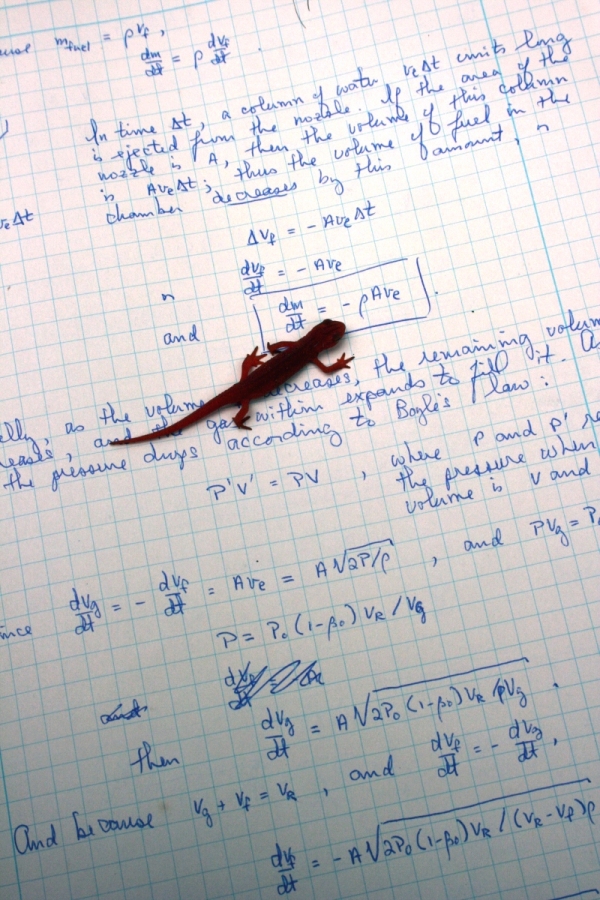 m_fuel = ρV_f ,
dm/dt = ρ dV_f/dt .
In time Δt, a column of water v_eΔt units long
is ejected from the nozzle. If the area of the
nozzle is A, then the volume of this column
is Av_eΔt; thus the volume of fuel in the
chamber decreases by this amount, n
v_eΔt
ΔV_f = -Av_eΔt
n
dV_f/dt = -Av_e
and
dm/dt = -ρAv_e .
as the volume decreases, the remaining volum
and the gas within expands to fill it. As
the pressure drops according to Boyle's law:
P'V' = PV , where P and P' re
the pressure when
volume is V and
dV_g/dt = - dV_f/dt = Av_e = A√2P/ρ , and PV_g = P₀
P = P₀(1-β₀)V_R/V_g
then dV_g/dt = A√2P₀(1-β₀)V_R/ρV_g .
And because V_g + V_f = V_R , and dV_f/dt = - dV_g/dt ,
dV_f/dt = -A√2P₀(1-β₀)V_R/(V_R-V_f)ρ